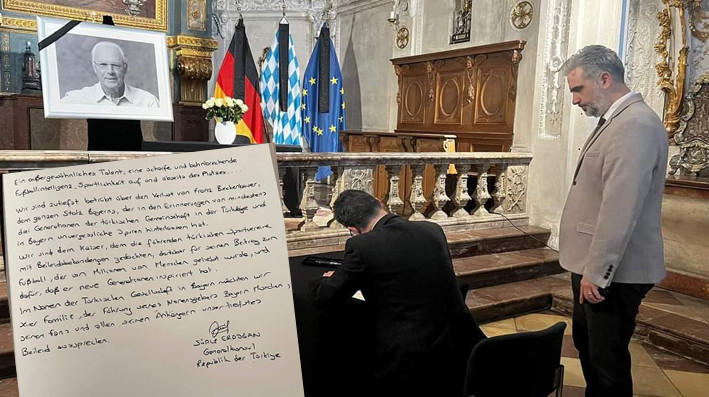 Ein außergewöhnliches Talent, eine scharfe und bahnbrechende
Fußballintelligenz, Sportlichkeit auf und abseits des Platzes...
Wir sind zutiefst betrübt über den Verlust von Franz Beckenbauer,
dem ganzen Stolz Bayerns, der in den Erinnerungen von mindestens
drei Generationen der türkischen Gemeinschaft in der Türkiye und
in Bayern unvergessliche Spuren hinterlassen hat.
Wir sind dem Kaiser, dem die führenden türkischen Sportvereine
mit Beileidsbekundungen gedachten, dankbar für seinen Beitrag zum
Fußball, der von Millionen von Menschen geliebt wurde, und
dafür, daß er neue Generationen inspiriert hat.
Im Namen der Türkischen Gesellschaft in Bayern möchten wir
Familie, der Führung seines Bayern München,
seinen Fans und allen seinen Anhängern unser tiefstes
Beileid aussprechen.
ERDOĞAN
Generalkonsul
Republik der Türkiye